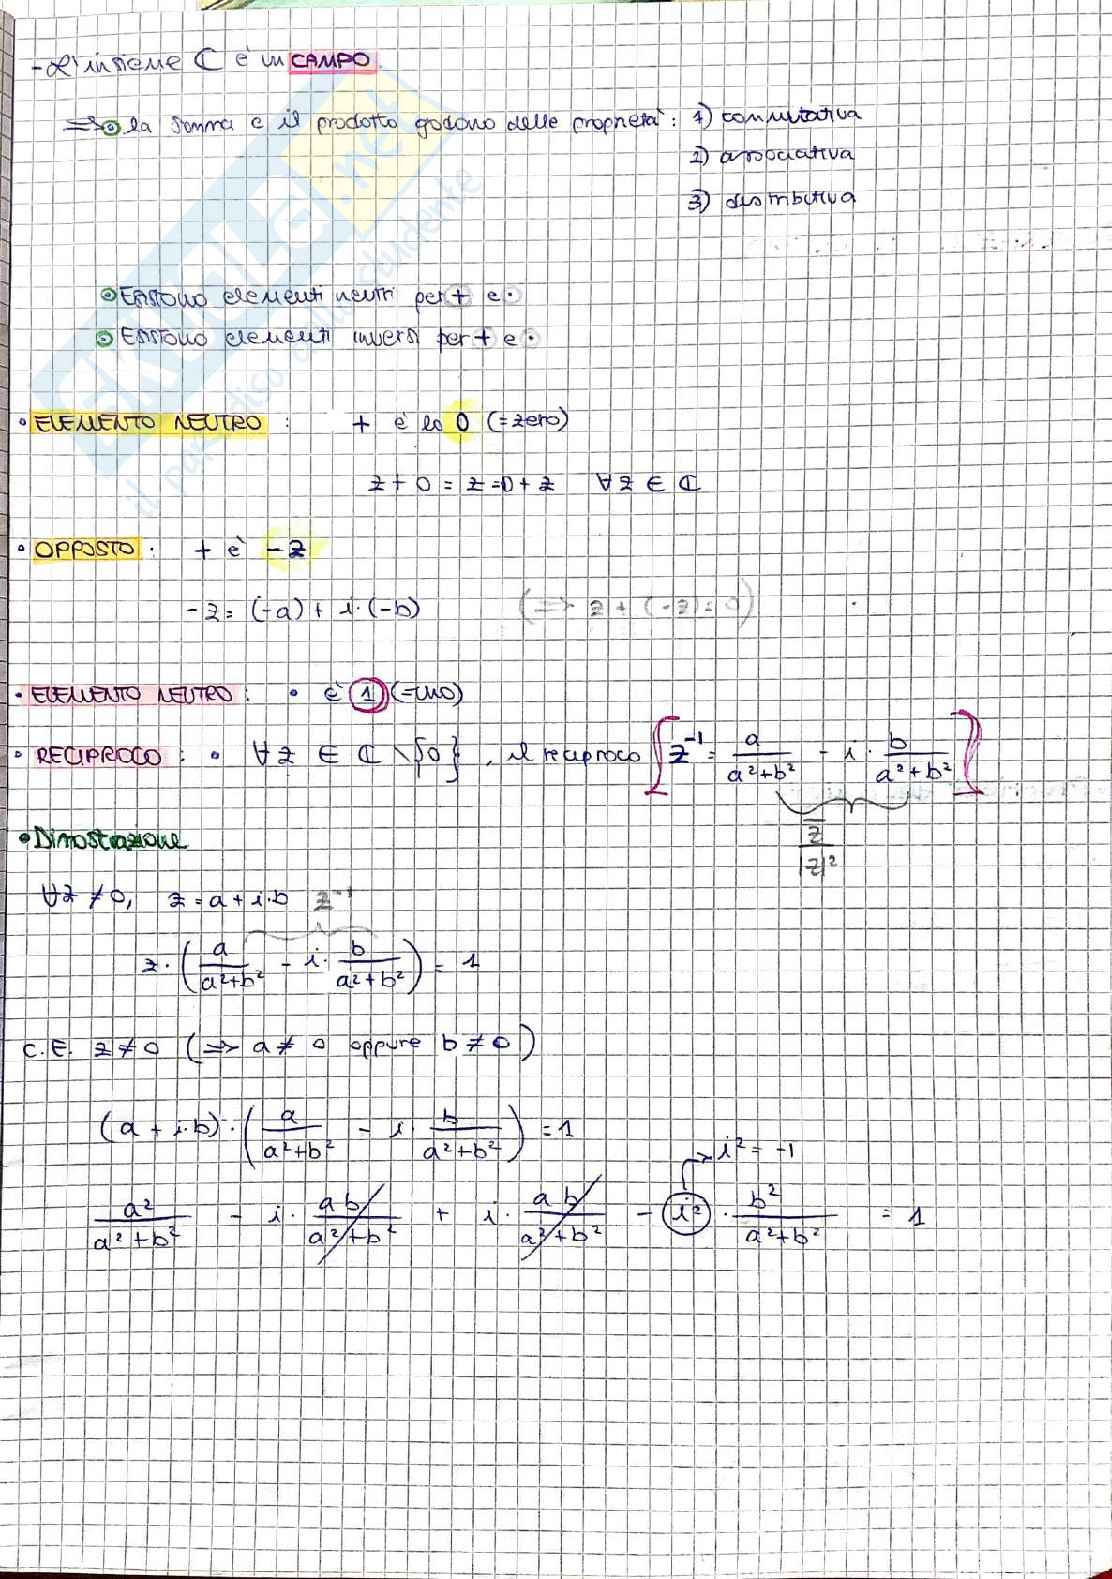 - L'insieme ℂ è un CAMPO
=> la somma e il prodotto godono delle proprietà: 1) commutativa
2) associativa
3) distributiva
Esistono elementi neutri per + e ·
Esistono elementi inversi per + e ·
• ELEMENTO NEUTRO : + è lo 0 (=zero)
z + 0 = z = 0 + z ∀ z ∈ ℂ
• OPPOSTO : + è -z
-z = (-a) + i·(-b) (=> z + (-z) = 0)
• ELEMENTO NEUTRO : • è 1 (=uno)
• RECIPROCO : • ∀ z ∈ ℂ \ {0}, il reciproco [z⁻¹ = a/(a²+b²) - i · b/(a²+b²)]
z̄/|z|²
• Dimostrazione
∀z ≠ 0, z = a + i·b z⁻¹
z · (a/(a²+b²) - i · b/(a²+b²)) = 1
C.E. z ≠ 0 (=> a ≠ 0 oppure b ≠ 0)
(a + i·b) · (a/(a²+b²) - i · b/(a²+b²)) = 1
i² = -1
a²/(a²+b²) - i · ab/(a²+b²) + i · ab/(a²+b²) - i² · b²/(a²+b²) = 1
SKUOLA.net
il paradiso dello studente